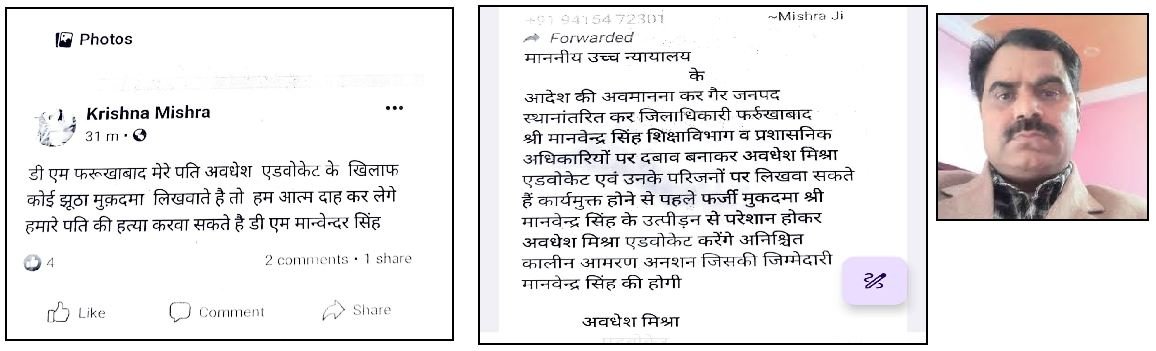 Photos
Krishna Mishra
31 m
डी एम फरूखाबाद मेरे पति अवधेश एडवोकेट के खिलाफ
कोई झूठा मुक़दमा लिखवाते है तो हम आत्म दाह कर लेगे
हमारे पति की हत्या करवा सकते है डी एम मान्वेन्दर सिंह
4
2 comments • 1 share
Like
Comment
Share
+91 94154 72301
~Mishra Ji
Forwarded
माननीय उच्च न्यायालय
के
आदेश की अवमानना कर गैर जनपद
स्थानांतरित कर जिलाधिकारी फर्रुखाबाद
श्री मानवेन्द्र सिंह शिक्षाविभाग व प्रशासनिक
अधिकारियों पर दबाव बनाकर अवधेश मिश्रा
एडवोकेट एवं उनके परिजनों पर लिखवा सकते
हैं कार्यमुक्त होने से पहले फर्जी मुकदमा श्री
मानवेन्द्र सिंह के उत्पीड़न से परेशान होकर
अवधेश मिश्रा एडवोकेट करेंगे अनिश्चित
कालीन आमरण अनशन जिसकी जिम्मेदारी
मानवेन्द्र सिंह की होगी
अवधेश मिश्रा